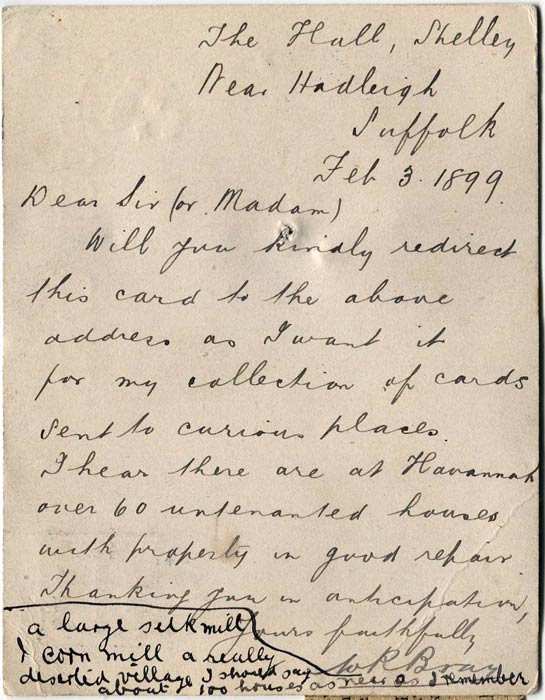 The Hall, Shelley
Near Hadleigh
Suffolk
Feb 3. 1899.
Dear Sir (or Madam)
Will you kindly redirect
this card to the above
address as I want it
for my collection of cards
sent to curious places.
I hear there are at Havannah
over 60 untenanted houses
with property in good repair
Thanking you in anticipation,
Yours faithfully
W R Bray
a large silk mill
1 corn mill a really
deserted village I should say
about 100 houses as near as I remember